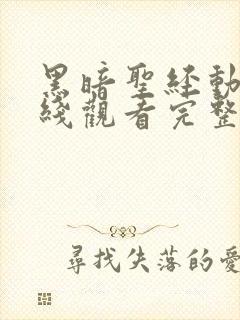 黑暗聖經動
綫觀看完整
尋找失落的愛